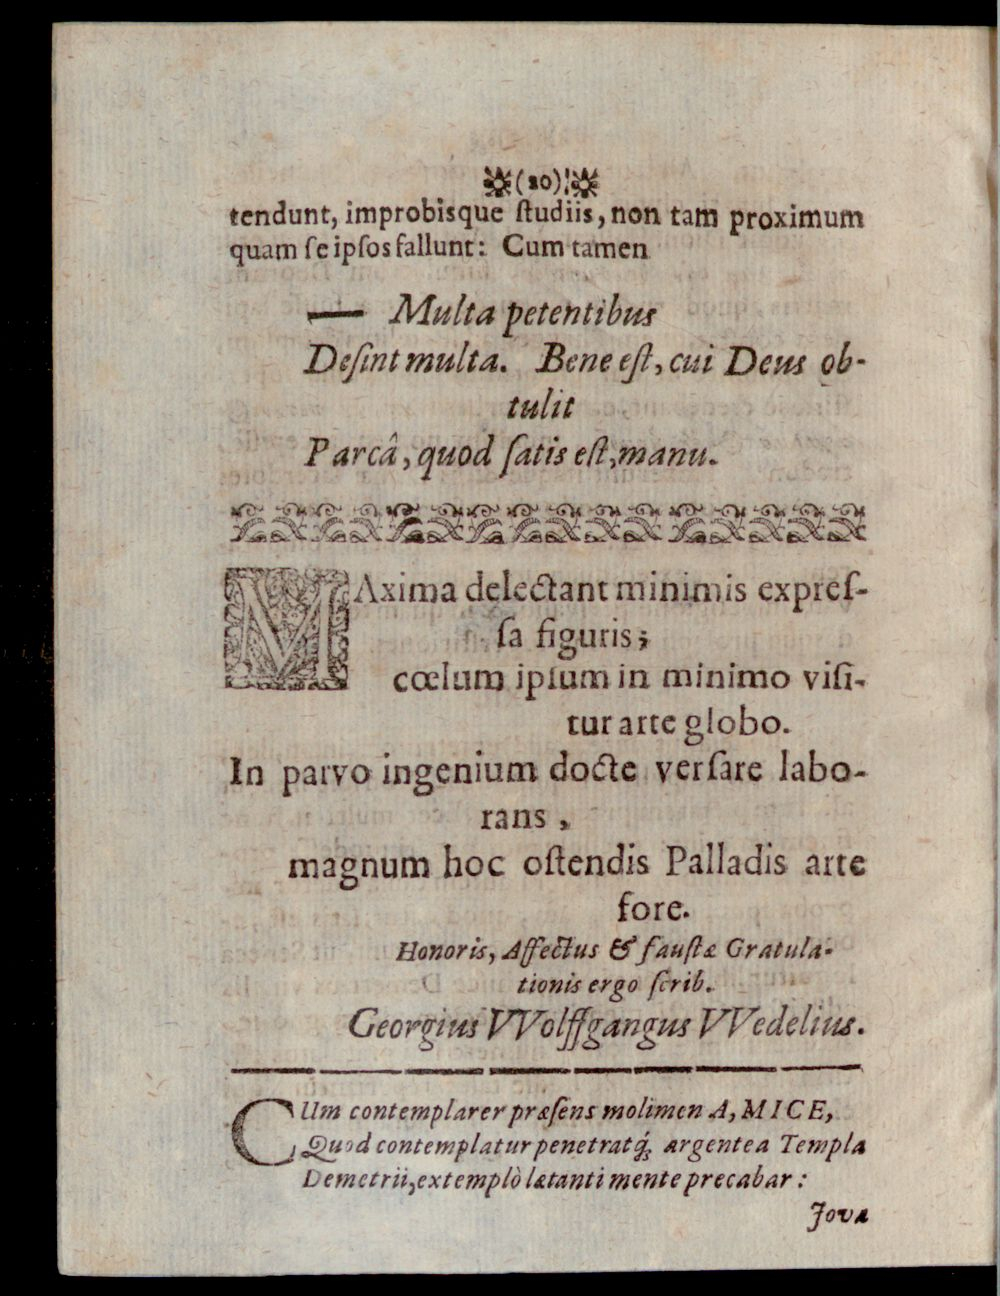 (20)
tendunt, improbisque ſtudiis, non tam proximum
quam ſe ipſos fallunt: Cum tamen
— Multa petentibus
Deſint multa. Bene eſt, cui Deus ob-
tulit
Parcâ, quod ſatis eſt, manu.
MAxima delectant minimis expreſ-
ſa figuris;
cœlum ipſum in minimo viſi-
tur arte globo.
In parvo ingenium docte verſare labo-
rans,
magnum hoc oſtendis Palladis arte
fore.
Honoris, Affectus & fauſtæ Gratula-
tionis ergo ſcrib.
Georgius VVolffgangus VVedelius.
CUm contemplarer præſens molimen A, MICE,
Quod contemplatur penetratq́; argentea Templa
Demetrii, extemplò lætanti mente precabar:
Jova